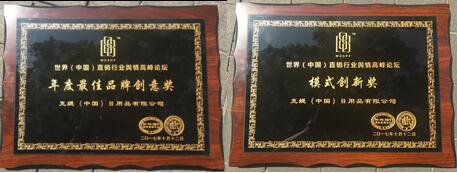 世界（中国）直销行业舆情高峰论坛
年度最佳品牌创意奖
克缇（中国）日用品有限公司
二〇一七年十月十二日
世界（中国）直销行业舆情高峰论坛
模式创新奖
克缇（中国）日用品有限公司
二〇一七年十月十二日